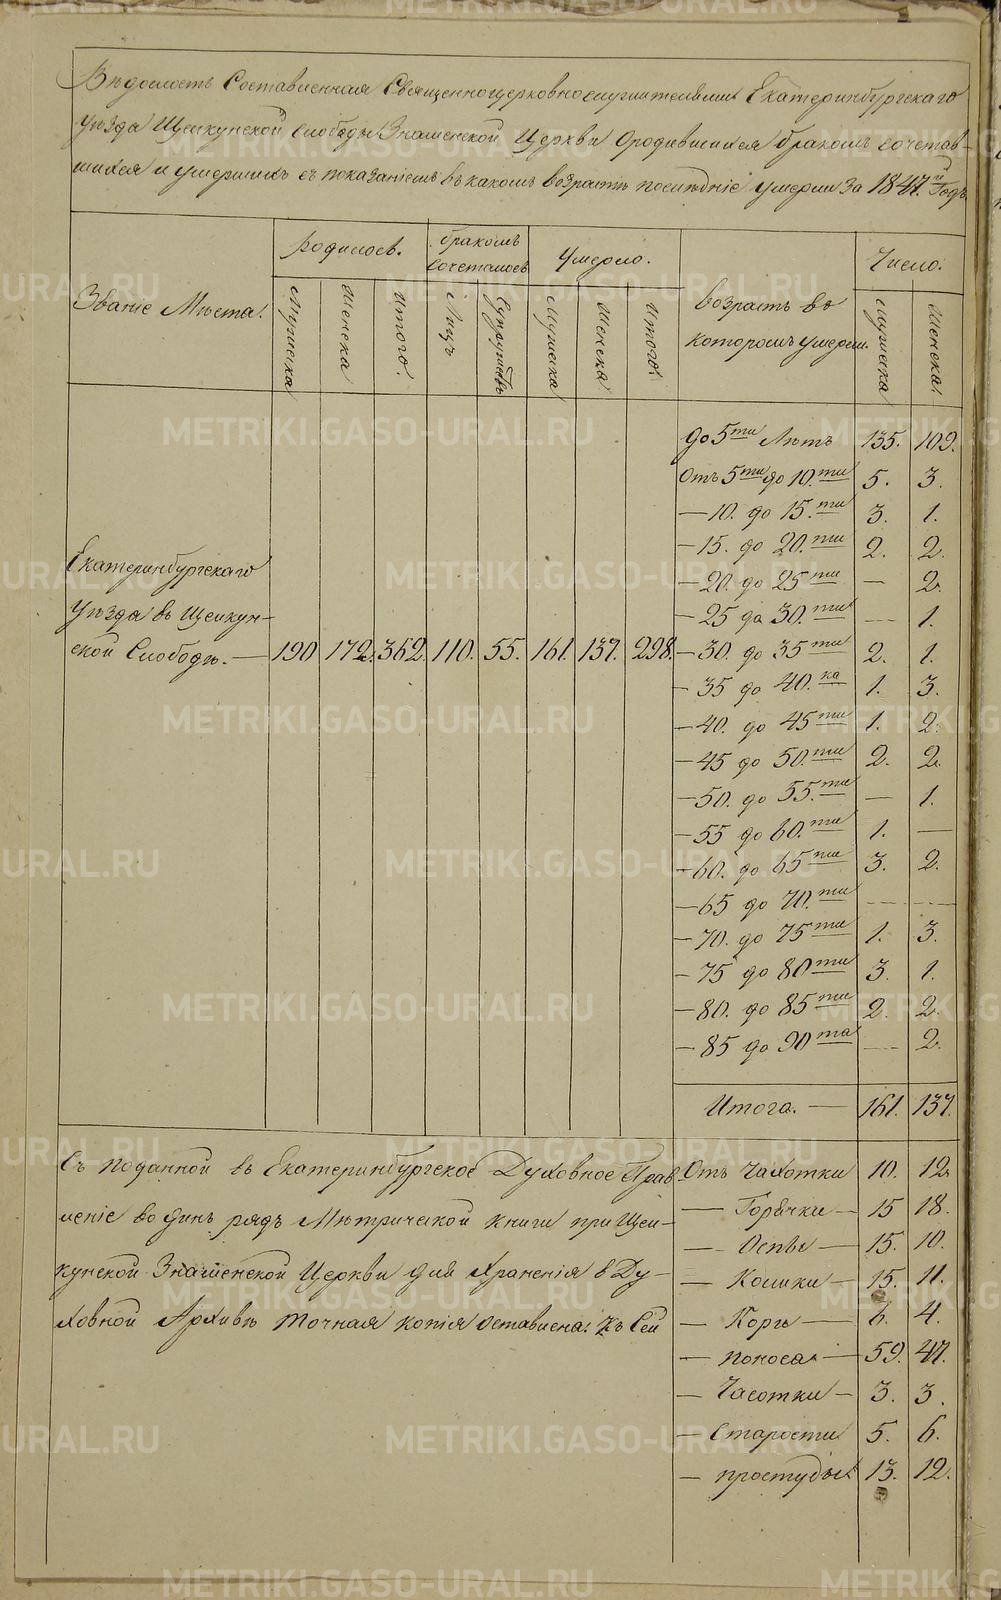 Вѣдомость Составленная Священноцерковнослужителями Екатеринбургскаго
Уѣзда Щелкунской слободы Знаменской Церкви Ородившихся бракомъ сочетав-
шихся и умершихъ съ показаніемъ въ какомъ возрастѣ послѣдніе умерли За 1847.й Годъ.
Званіе Мѣста.
Родилось.
бракомъ
Сочеталось
Умерло.
Возрастъ во
которомъ умерли.
Число.
Мужеска
Женска
Итого.
Лицъ
Супружствъ
Мужеска
Женска
Итого.
Мужеска
Женска.
до 5ти Лѣтъ 135. 109.
Отъ 5ти до 10.ти 5. 3.
— 10. до 15.ти 3. 1.
— 15. до 20.ти 2. 2.
— 20. до 25ти — 2.
— 25 до 30.ти — 1.
Екатеринбургскаго
Уѣзда въ Щелкун-
ской Слободѣ. — 190 172. 362. 110. 55. 161. 137. 298.
— 30. до 35ти 2. 1.
— 35 до 40.ка 1. 3.
— 40. до 45ти 1. 2.
— 45 до 50.ти 2. 2.
— 50. до 55.ти — 1.
— 55 до 60.ти 1. —
— 60. до 65ти 3. 2.
— 65 до 70.ти — —
— 70. до 75ти 1. 3.
— 75 до 80ти 3. 1.
— 80. до 85ти 2. 2.
— 85 до 90та — 2.
Итога. — 161. 137.
Съ поданной въ Екатеринбургское Духовное Прав-
леніе во финъ рядъ Мѣтрической книги при Щел-
кунской Знаменской Церкви для Храненія в Ду-
ховной Архивѣ точная копія оставлена. Къ Сей
Отъ Чахотки 10. 12.
— Горячки — 15 18.
— Оспы — 15. 10.
— Колики — 15. 11.
— Корь — 6. 4.
— поноса — 59. 47.
— Часотки — 3. 3.
— Старости 5. 6.
— простуды 13. 12.
METRIKI.GASO-URAL.RU